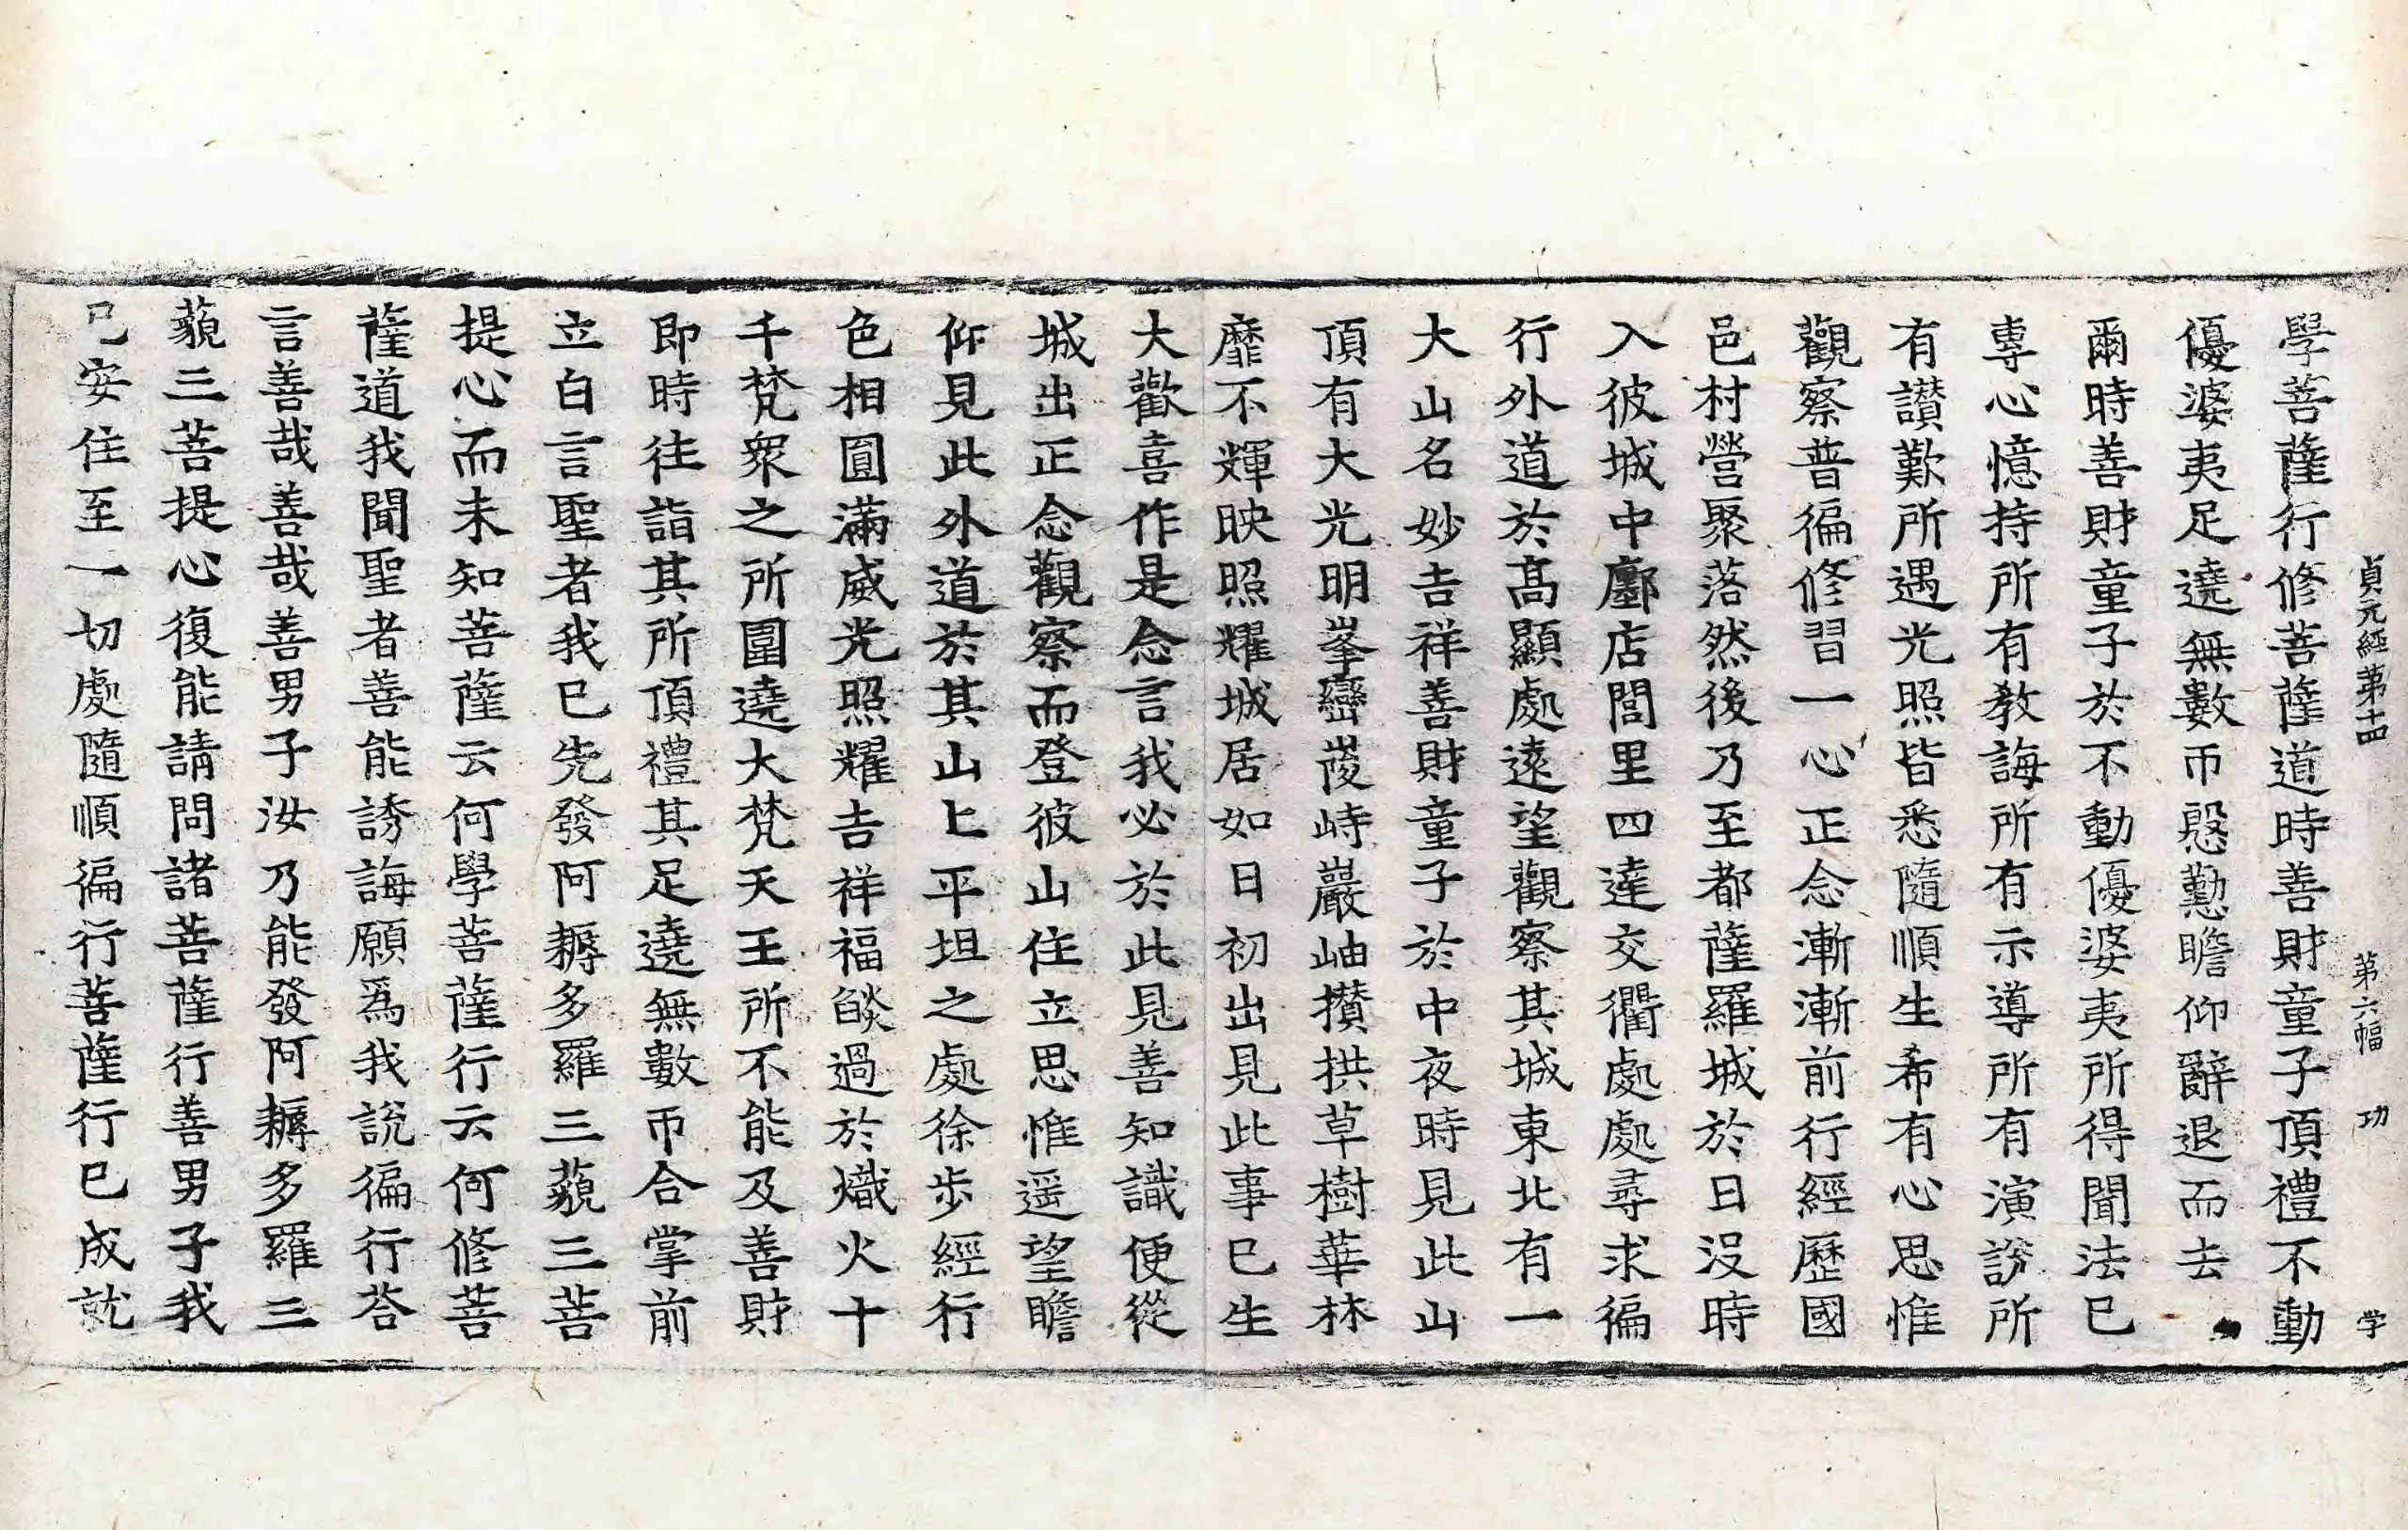 貞元經第十四 第六幅 功 学
學菩薩行修菩薩道時善財童子頂禮不動
優婆夷足遶無數帀慇懃瞻仰辭退而去
爾時善財童子於不動優婆夷所得聞法已
專心憶持所有教誨所有示導所有演說所
有讃歎所遇光照皆悉隨順生希有心思惟
觀察普徧修習一心正念漸漸前行經歷國
邑村營聚落然後乃至都薩羅城於日没時
入彼城中鄽店閭里四達交衢處處尋求徧
行外道於髙顯處遠望觀察其城東北有一
大山名妙吉祥善財童子於中夜時見此山
頂有大光明峯巒崚峙巖岫攅拱草樹華林
靡不輝映照耀城居如日初出見此事已生
大歡喜作是念言我必於此見善知識便從
城出正念觀察而登彼山住立思惟遥望瞻
仰見此外道於其山上平坦之處徐步經行
色相圓滿威光照耀吉祥福燄過於熾火十
千梵衆之所圍遶大梵天王所不能及善財
即時往詣其所頂禮其足遶無數帀合掌前
立白言聖者我已先發阿耨多羅三藐三菩
提心而未知菩薩云何學菩薩行云何修菩
薩道我聞聖者善能誘誨願爲我說徧行荅
言善哉善哉善男子汝乃能發阿耨多羅三
藐三菩提心復能請問諸菩薩行善男子我
已安住至一切處隨順徧行菩薩行已成就